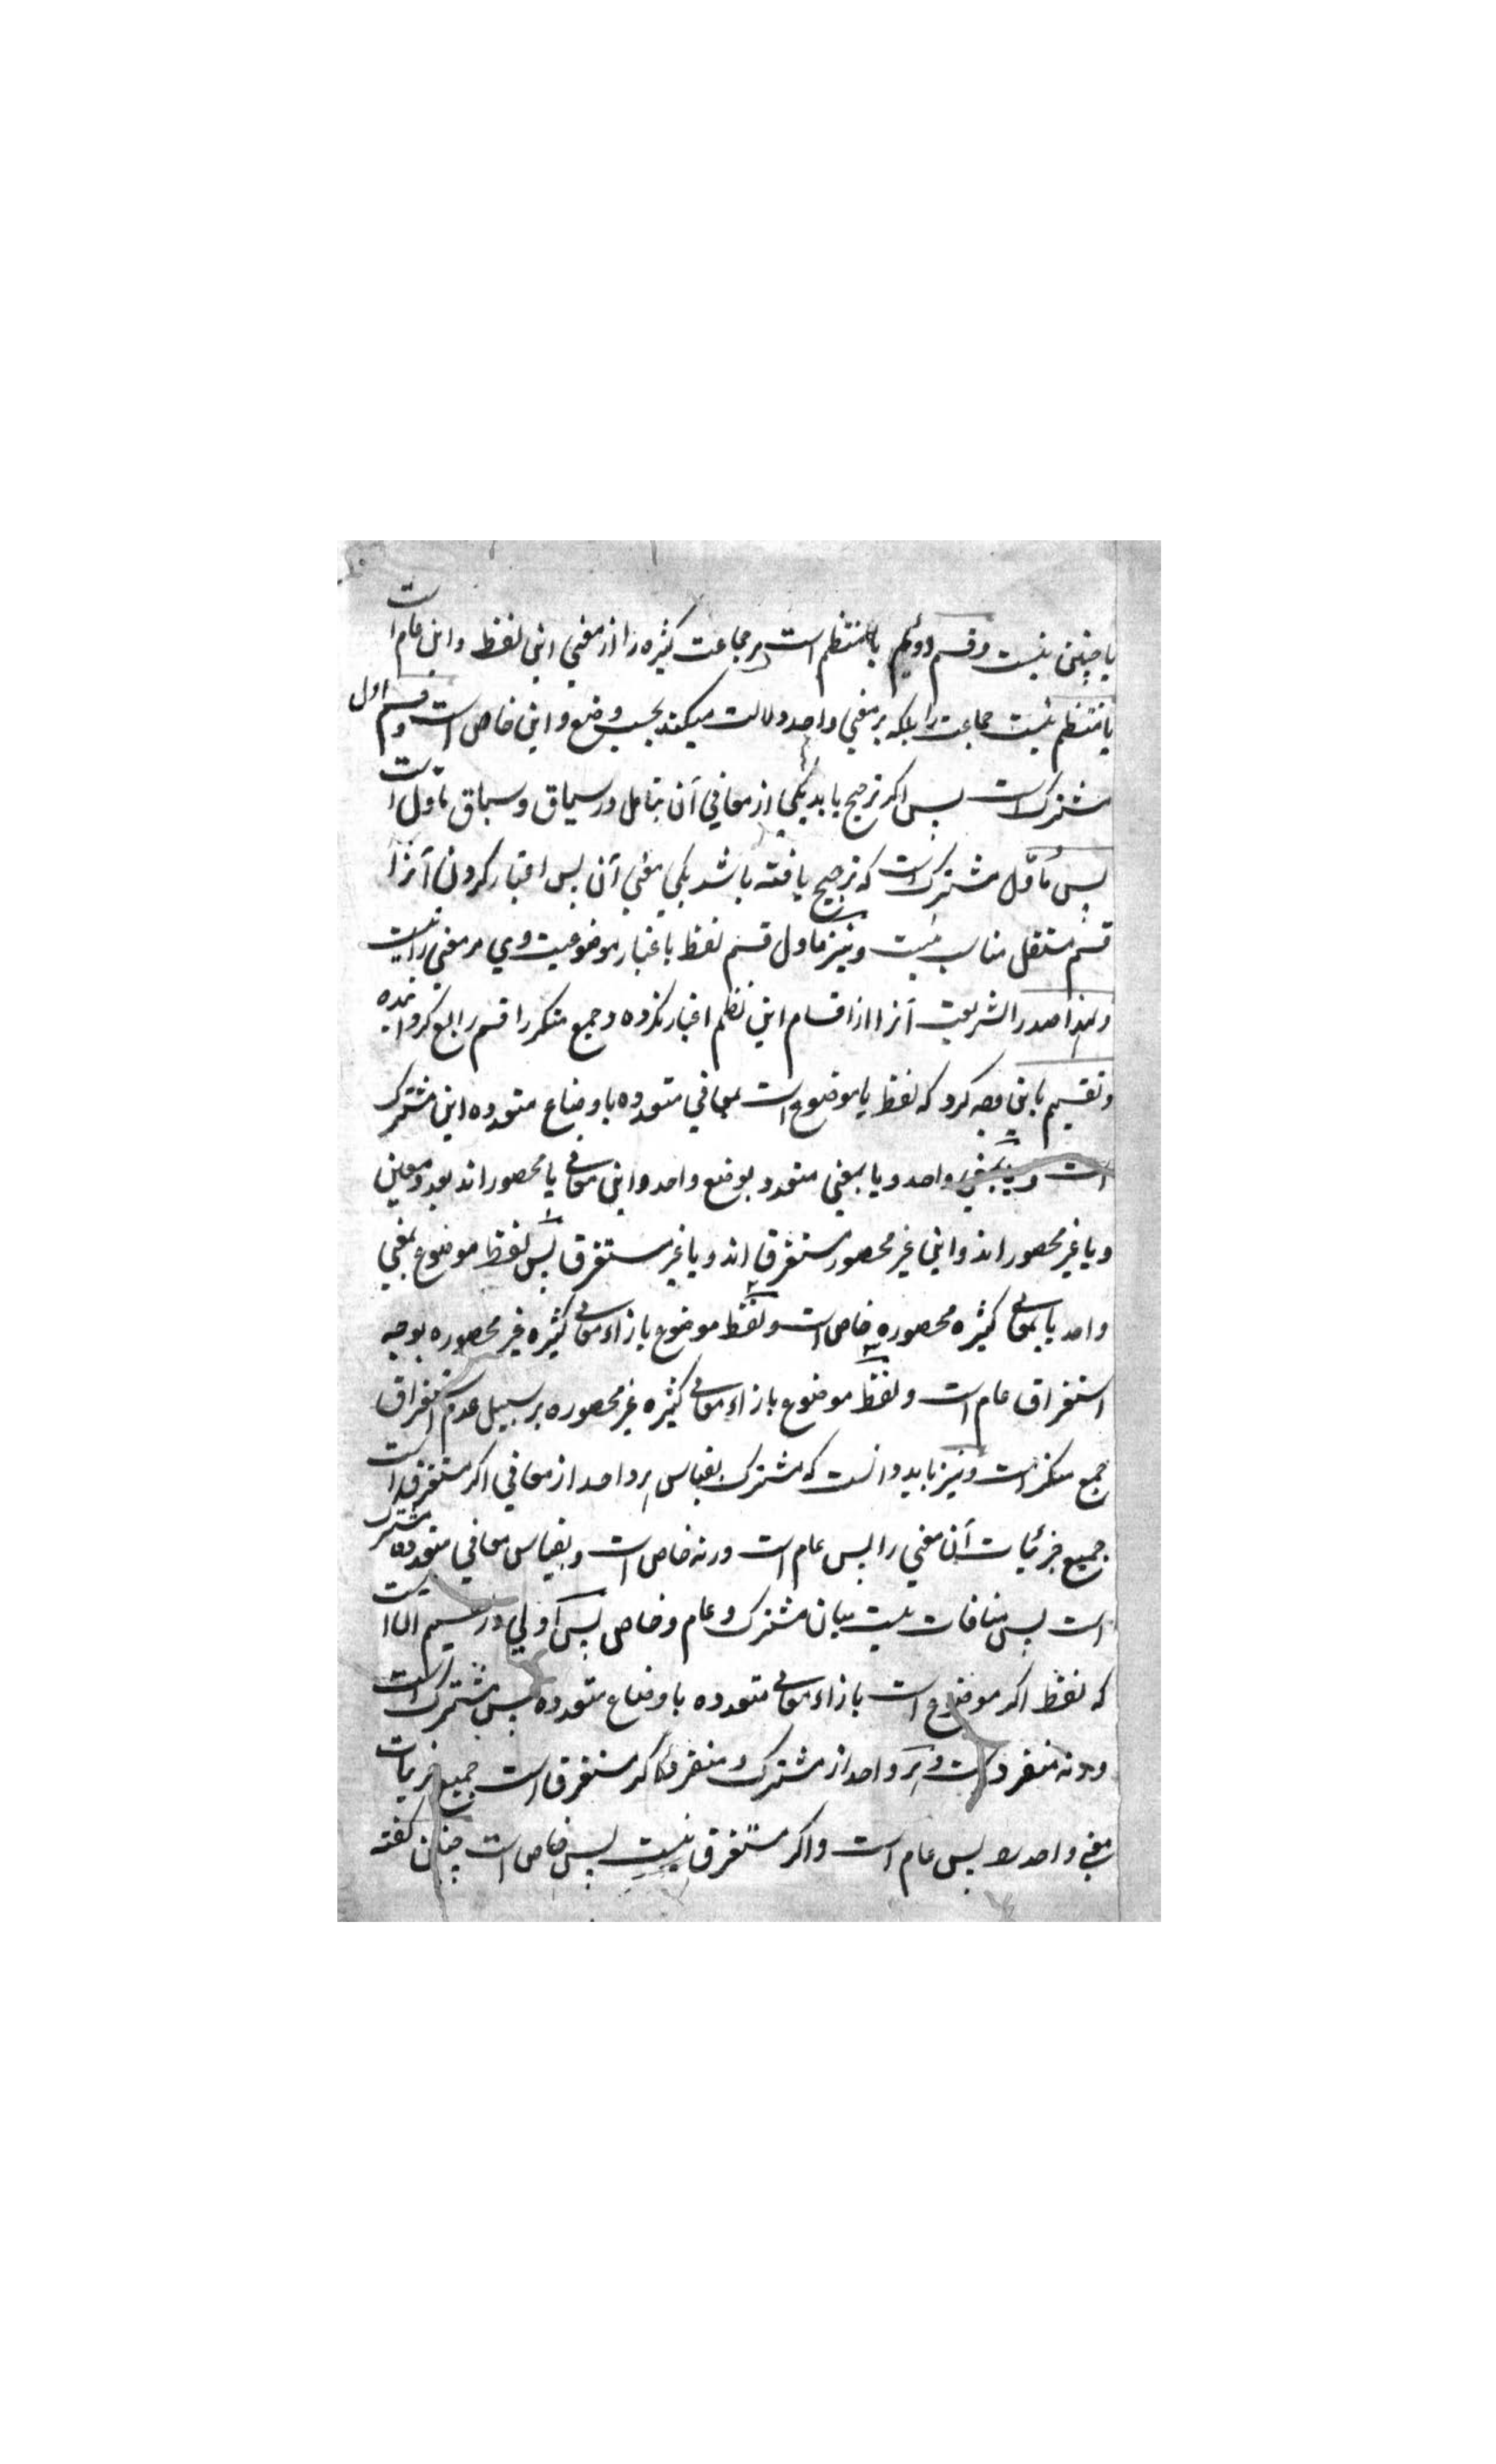 یا چنین نیست و قسم دوئم یا منتظم است مر جماعت کثیره را از معنی این لفظ و این عام است
یا منتظم نیست جماعت را بلکه بر معنی واحد دلالت میکند بحسب وضع و این خاص است و قسم اول
مشترک است پس اکر ترجیح یابد یکی از معانی آن بتامل در سیاق و سباق ماول است
پس مأوّل مشترک است که ترجیح یافته باشد یکی معنی آن پس اعتبار کردن آنرا
قسم مستقل مناسب نیست و نیز ماول قسم لفظ باعتبار موضوعیت وی مر معنی را نیست
و لهذا صدر الشریعت آنرا از اقسام این نظم اعتبار نکرده و جمع منکر را قسم رابع کردانیده
و تقسیم باین وجه کرد که لفظ یا موضوع است بمعانی متعدده باوضاع متعدده این مشترک
است و یا بمعنی واحد و یا بمعنی متعدد بوضع واحد و این معانی یا محصور اند بعدد معین
و یا غیر محصور اند و این غیر محصور مستغرق اند و یا غیر مستغرق پس لفظ موضوع بمعنی
واحد یا بمعانی کثیره محصوره خاص است و لفظ موضوع بازاء معانی کثیره غیر محصوره بوجه
استغراق عام است و لفظ موضوع بازاء معانی کثیره غیر محصوره بر سبیل عدم استغراق
جمع منکر است و نیز باید دانست که مشترک بقیاس هر واحد از معانی اکر مستغرق است
جمیع جزئیات آن معنی را پس عام است ورنه خاص است و بقیاس معانی متعدده مشترک
است پس منافات نیست میان مشترک و عام و خاص پس اولی در تقسیم آن است
که لفظ اکر موضوع است بازاء معانی متعدده باوضاع متعدده پس مشترک است
ورنه منفرد است و هر واحد از مشترک و منفرد اکر مستغرق است جمیع جزئیات
معنی واحد را پس عام است و اکر مستغرق نیست پس خاص است چنان کفته